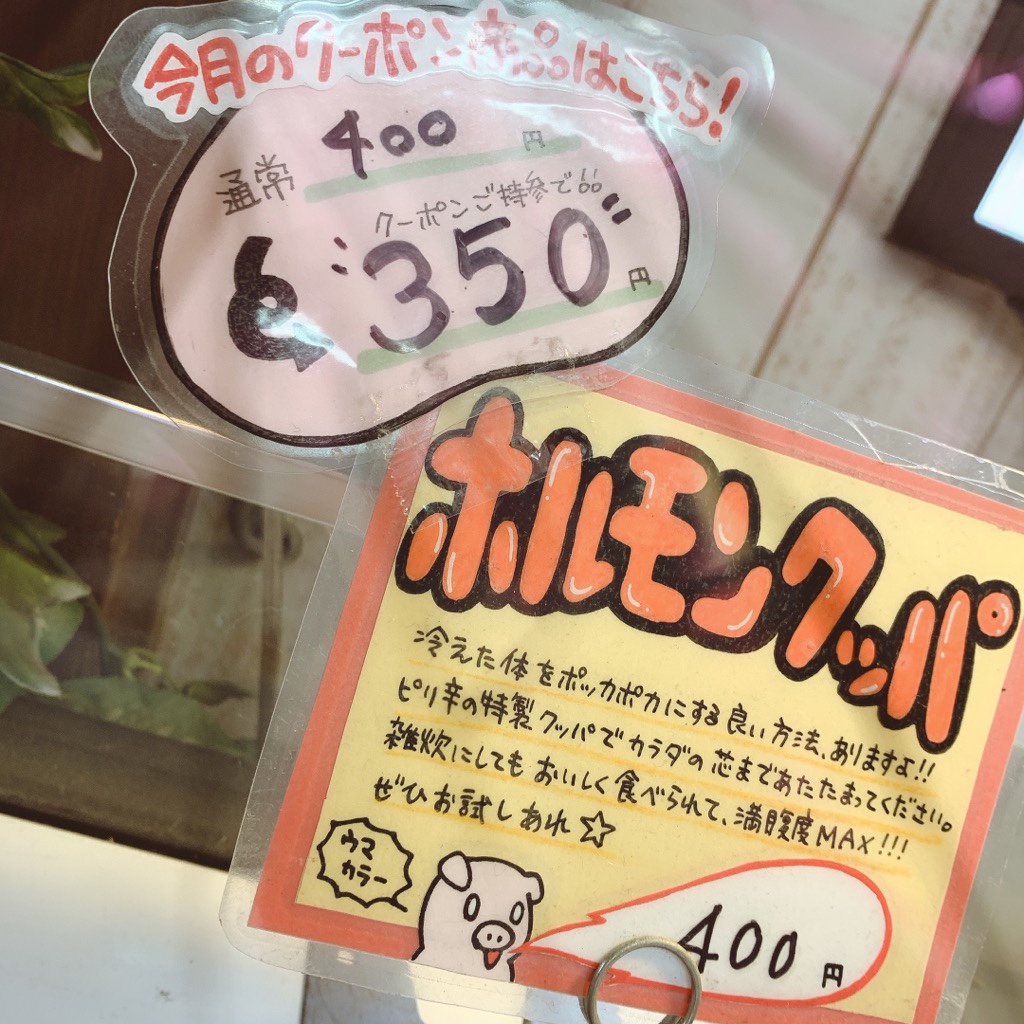 今月のクーポン商品はこちら!
通常 400 円
クーポンご持参で
"350" 円
ホルモンクッパ
冷えた体をポッカポカにする良い方法、ありますよ!!
ピリ辛の特製クッパでカラダの芯まであたたまってください。
雑炊にしてもおいしく食べられて、満腹度MAX!!!
ぜひお試しあれ☆
ウマ
カラー
400 円